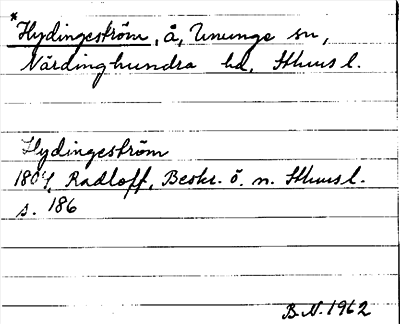 *Hydingeström, å, Ununge sn,
Närdinghundra hd, Sthms l.
Hydingeström
1804, Radloff, Beskr. ö. n. Sthms l.
s. 186
B.N. 1962